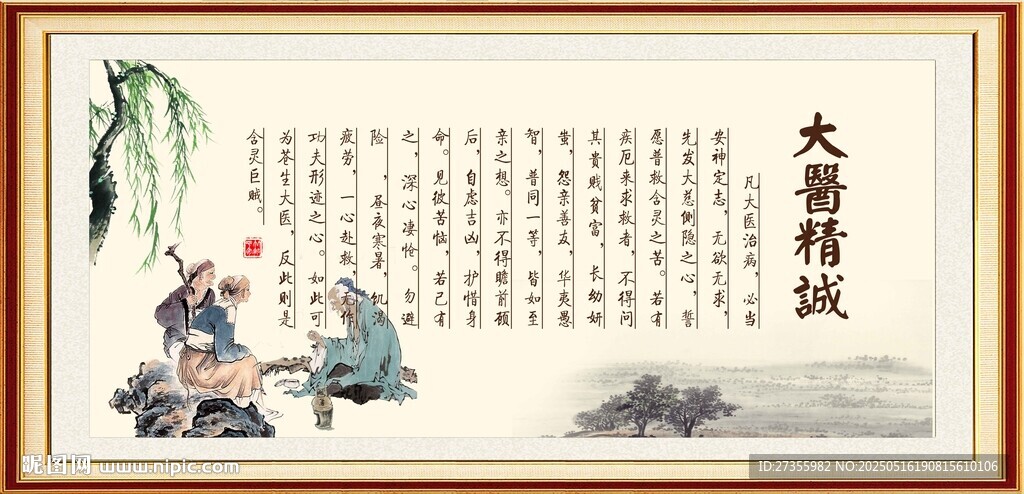 大醫精誠
凡大医治病，必当
安神定志，无欲无求，
先发大慈恻隐之心，誓
愿普救含灵之苦。若有
疾厄来求救者，不得问
其贵贱贫富，长幼妍
蚩，怨亲善友，华夷愚
智，普同一等，皆如至
亲之想。亦不得瞻前顾
后，自虑吉凶，护惜身
命。见彼苦恼，若己有
之，深心凄怆。勿避
险，昼夜寒暑，饥渴
疲劳，一心赴救，无作
功夫形迹之心。如此可
为苍生大医，反此则是
含灵巨贼。
昵图网 www.nipic.com
ID:27355982 NO:20250516190815610106